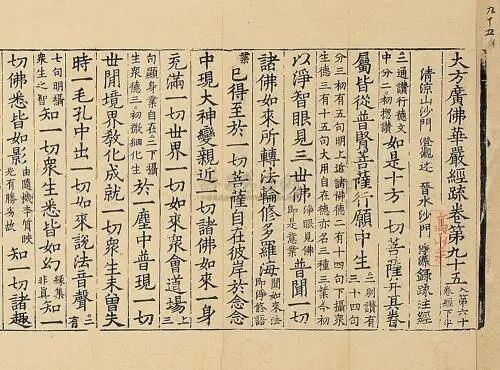 九十五
大方廣佛華嚴經疏卷第九十五 入第六十卷經下半
清涼山沙門 澄觀述 晉水沙門 淨源錄疏注經
三通讃行德文中分二初揔讃如是十方一切菩薩并其眷
屬皆從普賢菩薩行願中生二別讃有三十四句
分三初有五句明上近諸佛德二有一十四句下攝衆生德三有十五句大用自在德亦名三種三業今初
以淨智眼見三世佛淨眼見佛即是意業普聞一切
諸佛如來所轉法輪修多羅海聞如來法即得語
業已得至於一切菩薩自在彼岸於念念
中現大神變親近一切諸佛如來一身
充滿一切世界一切如來衆會道場
句顯身業自在三下攝生衆德三初微細化生於一塵中普現一切
世間境界教化成就一切衆生未曽失
時一毛孔中出一切如來說法音聲二有
七句明攝衆生之智知一切衆生悉皆如幻緣集非真知一
切佛悉皆如影由隨機質映光有勝劣故知一切諸趣